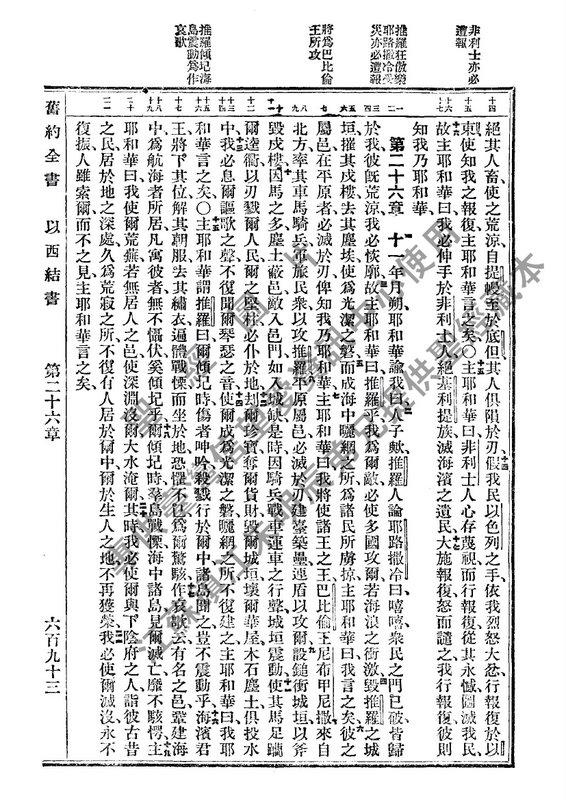 非利士亦必
遭報
推羅狂傲樂
耶路撒冷受
災亦必遭報
將為巴比倫
王所攻
推羅傾圮海
島震動為作
哀歌
絕其人畜使之荒涼自提幔至於底但其人俱隕於刃假我民以色列之手依我烈怒大忿行報復於以
東使知我之報復主耶和華言之矣〇主耶和華曰非利士人心存蔑視而行報復從其永憾圖滅我民
故主耶和華曰我必伸手於非利士人絕基利提族滅海濱之遺民大施報復怒而譴之我行報復彼則
知我乃耶和華
第二十六章 十一年月朔耶和華諭我曰人子歟推羅人論耶路撒冷曰嘻嘻衆民之門已破皆歸
於我彼既荒涼我必恢廓故主耶和華曰推羅乎我為爾敵必使多國攻爾若海浪之衝激毀推羅之城
垣摧其戍樓去其塵埃使為光潔之磐而成海中曬網之所為諸民所虜掠主耶和華曰我言之矣彼之
屬邑在平原者必滅於刃俾知我乃耶和華主耶和華曰我將使諸王之王巴比倫王尼布甲尼撒來自
北方率其車馬騎兵軍旅民衆以攻推羅平原屬邑必滅於刃建臺築壘逞盾以攻爾設鎚衝城垣以斧
毀戍樓因馬之多塵土蔽邑敵入邑門如入城缺是時因騎兵戰車運車之行聲城垣震動使其馬足躪
爾逵衢以刃戮爾人民爾之堅柱必仆於地刦爾珍寶奪爾貨財毀爾城垣壞爾華屋木石塵土俱投水
中我必息爾謳歌之聲不復聞爾琴瑟之音使爾成為光潔之磐曬網之所不復建之主耶和華曰我耶
和華言之矣〇主耶和華謂推羅曰爾傾圮時傷者呻吟殺戮行於爾中諸島聞之豈不震動乎海濱君
王將下其位解其朝服去其繡衣遍體戰慄而坐於地恐懼不已為爾驚駭作哀歌云有名之邑鞏建海
中為航海者所居凡寓彼者無不懾伏奚傾圮乎爾傾圮時羣島戰慄海中諸島見爾滅亡靡不駭愕主
耶和華曰我使爾荒蕪若無居人之邑使深淵沒爾大水淹爾其時我必使爾與下陰府之人詣彼古昔
之民居於地之深處久為荒寂之所不復有人居於爾中爾於生人之地不再獲榮我必使爾滅沒永不
復振人雖索爾而不之見主耶和華言之矣
舊約全書 以西結書 第二十六章 六百九十三